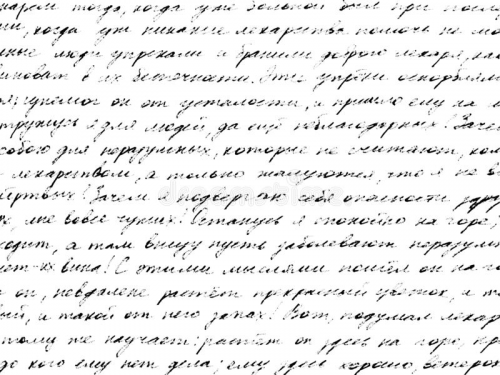 карем тогда, когда уже больной был при после
ни, когда уж никакие лекарства помочь не мо
ные люди упрекали и бранили доброго лекаря, как
виноват в их беспечности. Эти упрёки оскорбляли
изнемог он от усталости, и пришло ему на
тружусь я для людей, да ещё неблагодарных! Заче
собою для неразумных, которые не считают, ком
лекарством, а только жалуются, что я не
мёртвых! Зачем я подвергаю себя опасности
мне вовсе чужих! Останусь я спокойно на горе;
ходит, а там внизу пусть заболевают неразумн
ет их вина! С этими мыслями пошёл он на го
он, невдалеке растёт прекрасный цветок, и т
вый, и такой от него запах! Вот, подумал лекар
тому же научает: растёт он здесь на горе, пр
до кого ему нет дела; ему здесь хорошо, ветерок